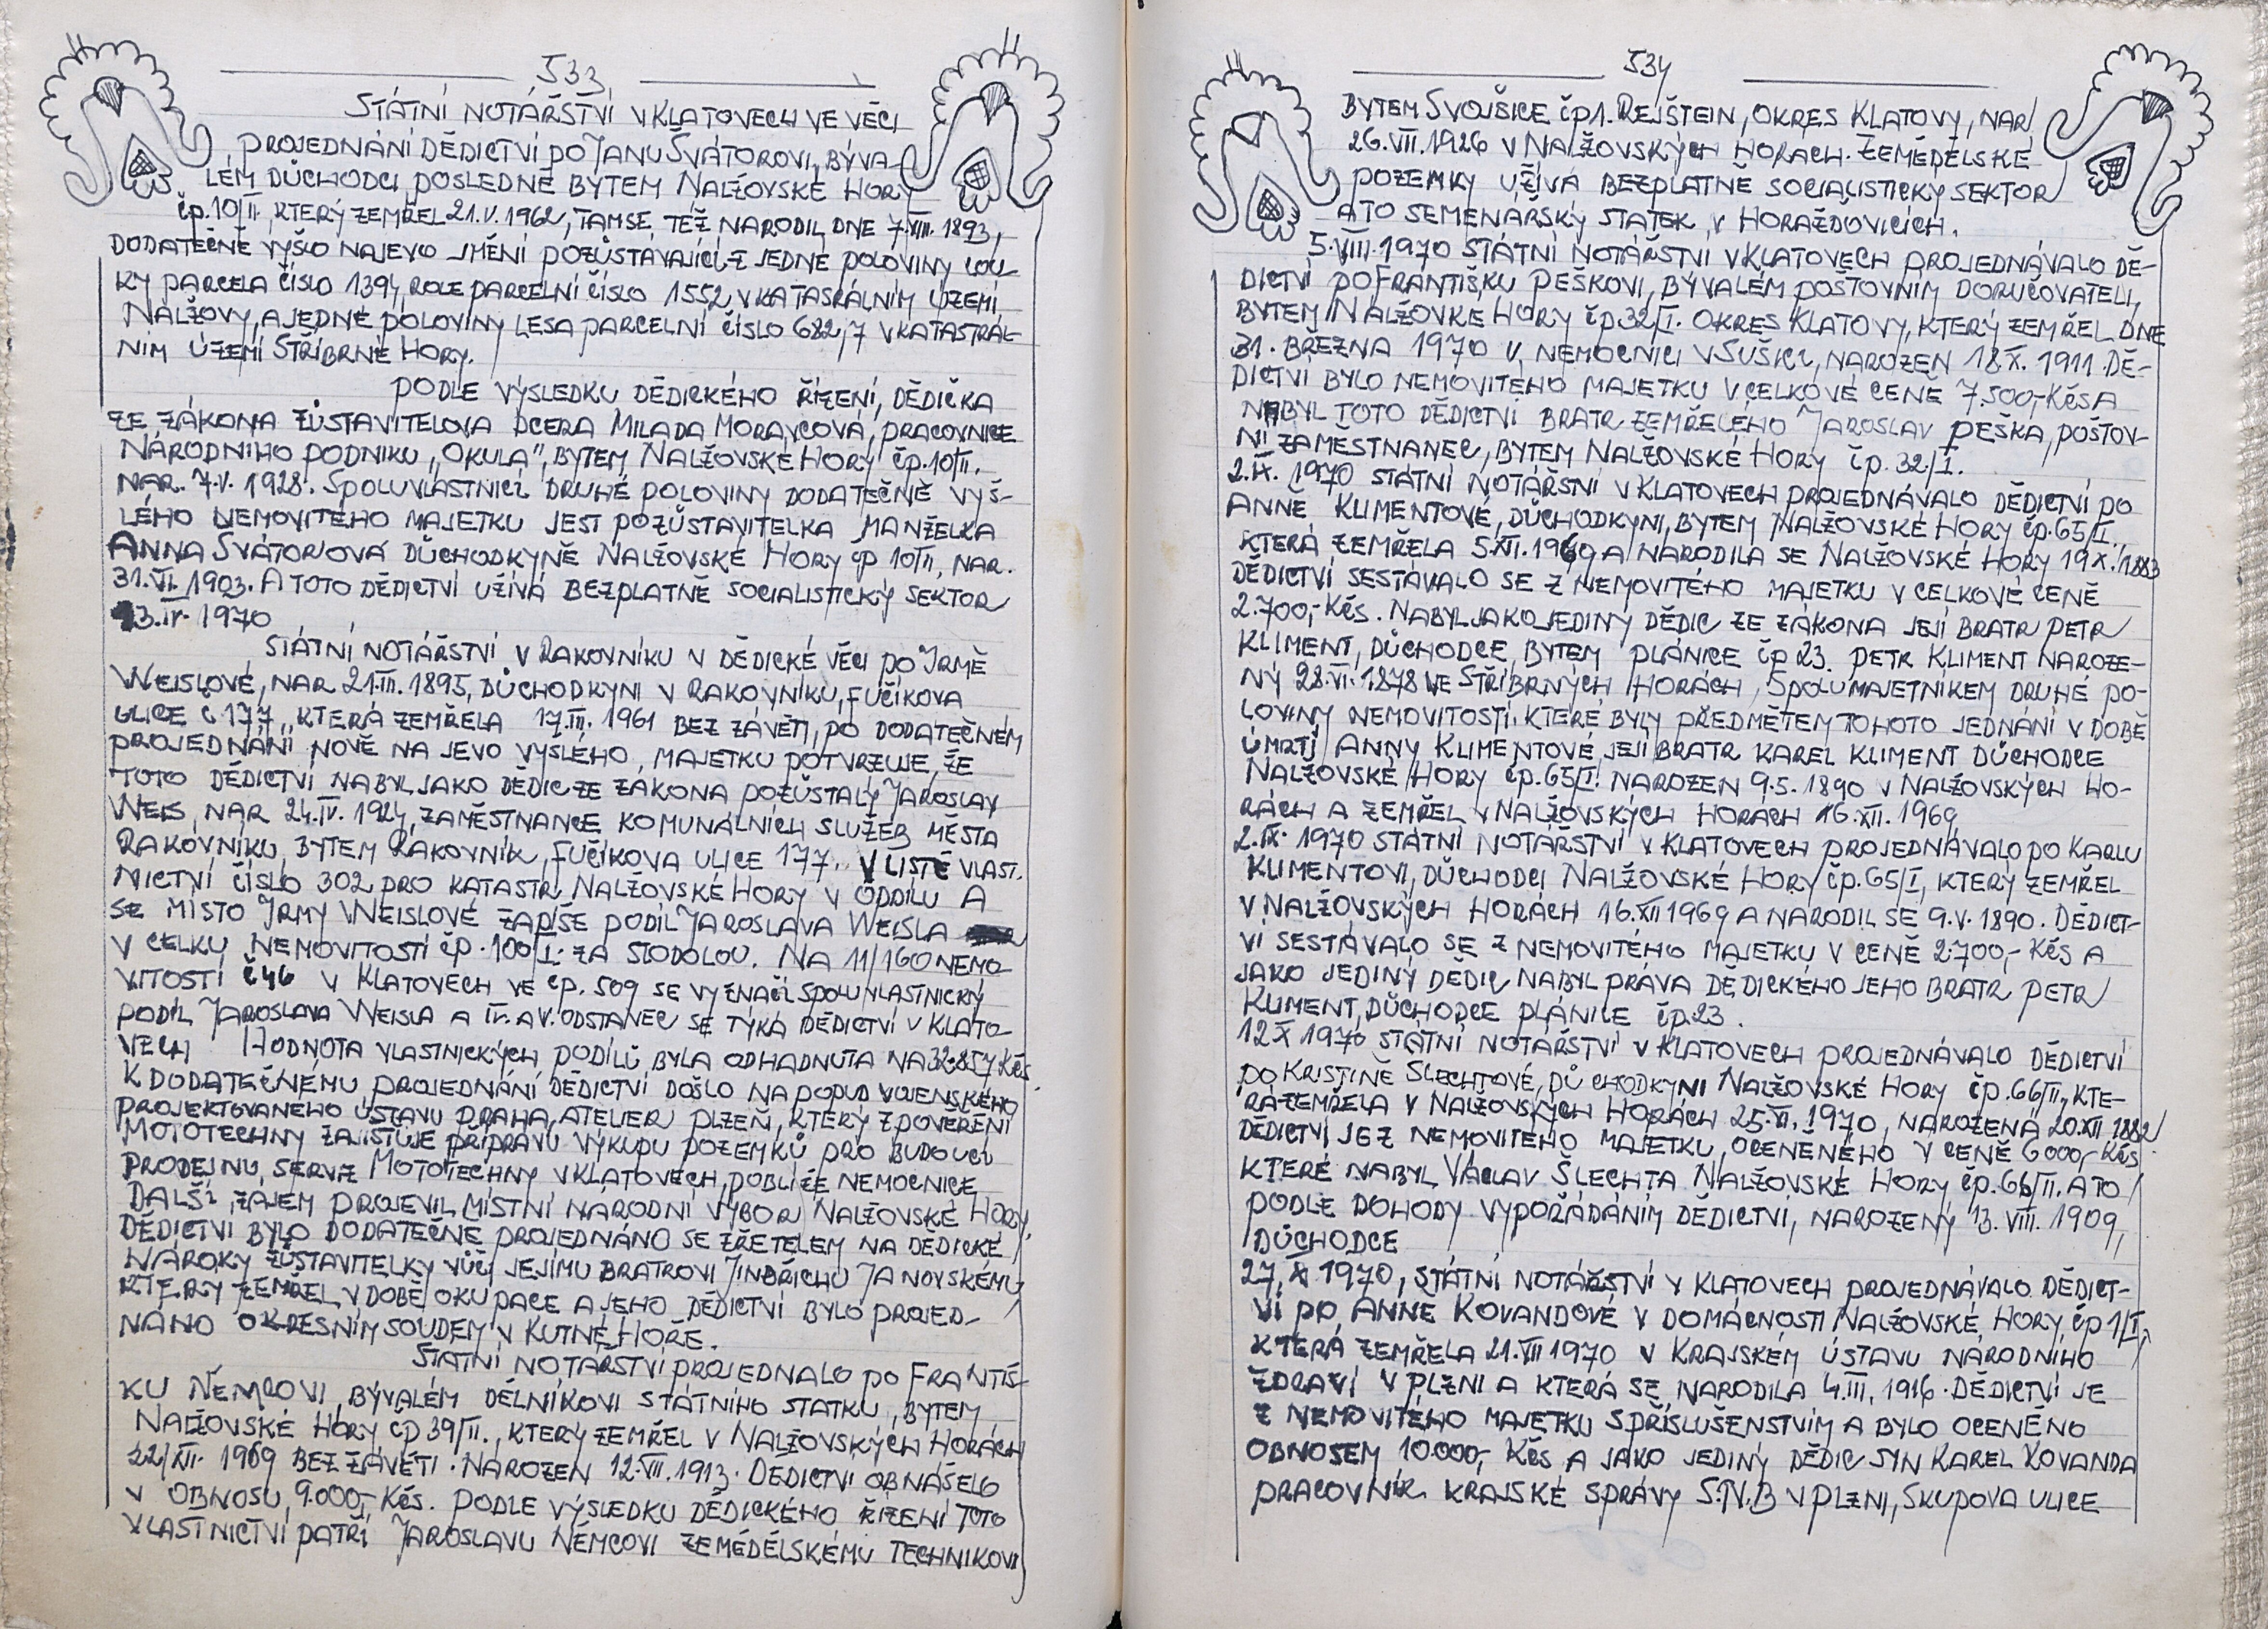 533
STÁTNÍ NOTÁŘSTVÍ V KLATOVECH VE VĚCI
PROJEDNÁNÍ DĚDICTVÍ PO JANU ŠVÁTOROVI, BÝVA-
LÉM DŮCHODCI, POSLEDNĚ BYTEM NALŽOVSKÉ HORY
čp. 10/II. KTERÝ ZEMŘEL 21.V.1962, TAMSE TÉŽ NARODIL DNE 7.VIII. 1893,
DODATEČNĚ VYŠLO NAJEVO JMĚNÍ POZŮSTÁVAJÍCÍ Z JEDNÉ POLOVINY LOU-
KY PARCELA ČÍSLO 1394, ROLE PARCELNÍ ČÍSLO 1552 V KATASRÁLNÍM ÚZEMÍ
NALŽOVY, A JEDNÉ POLOVINY LESA PARCELNÍ ČÍSLO 682/7 V KATASTRÁL-
NÍM ÚZEMÍ STŘÍBRNÉ HORY.
PODLE VÝSLEDKU DĚDICKÉHO ŘÍZENÍ, DĚDIČKA
ZE ZÁKONA ZŮSTAVITELOVA DCERA MILADA MORAVCOVÁ, PRACOVNICE
NÁRODNÍHO PODNIKU „OKULA", BYTEM NALŽOVSKÉ HORY čp. 10/II.
NAR. 7.V. 1928. SPOLUVLASTNICÍ DRUHÉ POLOVINY DODATEČNĚ VYŠ-
LÉHO NEMOVITÉHO MAJETKU JEST POZŮSTAVITELKA MANŽELKA
ANNA SVÁTOROVÁ DŮCHODKYNĚ NALŽOVSKÉ HORY čp 10/II, NAR.
31.VI. 1903. A TOTO DĚDICTVÍ UŽÍVÁ BEZPLATNĚ SOCIALISTICKÝ SEKTOR
3.IV. 1970
STÁTNÍ NOTÁŘSTVÍ V RAKOVNÍKU V DĚDICKÉ VĚCI PO IRMĚ
WEISLOVÉ, NAR 21.III. 1895, DŮCHODKYNI V RAKOVNÍKU, FUČÍKOVA
ULICE č. 177, KTERÁ ZEMŘELA 17.III. 1961 BEZ ZÁVĚTI, PO DODATEČNÉM
PROJEDNÁNÍ NOVĚ NA JEVO VYŠLÉHO, MAJETKU POTVRZUJE, ŽE
TOTO DĚDICTVÍ NABYL JAKO DĚDIC ZE ZÁKONA POZŮSTALÝ JAROSLAV
WEIS, NAR 24.IV. 1924, ZAMĚSTNANCE KOMUNÁLNÍCH SLUŽEB MĚSTA
RAKOVNÍKU, BYTEM RAKOVNÍK, FUČÍKOVA ULICE 177. V LISTĚ VLAST-
NICTNÍ ČÍSLO 302 PRO KATASTR NALŽOVSKÉ HORY V ODDÍLU A
SE MÍSTO IRMY WEISLOVÉ ZAPÍŠE PODÍL JAROSLAVA WEISLA
V CELKU NEMOVITOSTÍ čp. 100/I. ZA STODOLOU. NA 11/160 NEMO-
VITOSTÍ č46 V KLATOVECH VE čp. 509 SE VYZNAČÍ SPOLUVLASTNICKÝ
PODÍL JAROSLAVA WEISLA A IV. A V. ODSTAVEC SE TÝKÁ DĚDICTVÍ V KLATO-
VECH HODNOTA VLASTNICKÝCH PODÍLŮ BYLA ODHADNUTA NA 32.857 Kčs.
K DODATEČNÉMU PROJEDNÁNÍ DĚDICTVÍ DOŠLO NA POPUD VOJENSKÉHO
PROJEKTOVANÉHO ÚSTAVU PRAHA, ATELIER PLZEŇ, KTERÝ Z POVĚŘENÍ
MOTOTECHNY ZAJIŠŤUJE PŘÍPRAVU VÝKUPU POZEMKŮ PRO BUDOUCÍ
PRODEJNU, SERVIZ MOTOTECHNY V KLATOVECH, POBLÍŽE NEMOCNICE
DALŠÍ ZÁJEM PROJEVIL MÍSTNÍ NÁRODNÍ VÝBOR NALŽOVSKÉ HORY,
DĚDICTVÍ BYLO DODATEČNĚ PROJEDNÁNO SE ZŘETELEM NA DĚDICKÉ
NÁROKY ZŮSTAVITELKY VŮČI JEJÍMU BRATROVI JINDŘICHU JANOVSKÉMU,
KTERÝ ZEMŘEL V DOBĚ OKUPACE A JEHO DĚDICTVÍ BYLO PROJED-
NÁNO OKRESNÍM SOUDEM V KUTNÉ HOŘE.
STÁTNÍ NOTÁŘSTVÍ PROJEDNALO PO FRANTIŠ-
KU NĚMCOVI, BÝVALÉM DĚLNÍKOVI STÁTNÍHO STATKU, BYTEM
NALŽOVSKÉ HORY ČP 39/II., KTERÝ ZEMŘEL V NALŽOVSKÝCH HORÁCH
22/XII. 1969 BEZ ZÁVĚTI. NAROZEN 12.VIII. 1913. DĚDICTVÍ OBNÁŠELO
V OBNOSU 9.000,- Kčs. PODLE VÝSLEDKU DĚDICKÉHO ŘÍZENÍ TOTO
VLASTNICTVÍ PATŘÍ JAROSLAVU NĚMCOVI ZEMĚDĚLSKÉMU TECHNIKOVI
534
BYTEM SVOJŠICE čp 1. REJŠTEIN, OKRES KLATOVY, NAR
26.VII. 1926 V NALŽOVSKÝCH HORÁCH. ZEMĚDĚLSKÉ
POZEMKY UŽÍVÁ BEZPLATNĚ SOCIALISTICKÝ SEKTOR
A TO SEMENÁŘSKÝ STATEK V HORAŽĎOVICÍCH.
5.VIII. 1970 STÁTNÍ NOTÁŘSTVÍ V KLATOVECH PROJEDNÁVALO DĚ-
DICTVÍ PO FRANTIŠKU PEŠKOVI, BÝVALÉM POŠTOVNÍM DORUČOVATELI,
BYTEM NALŽOVKE HORY čp. 32/I. OKRES KLATOVY, KTERÝ ZEMŘEL DNE
31. BŘEZNA 1970 V NEMOCNICI V SUŠICI, NAROZEN 18.X. 1911. DĚ-
DICTVÍ BYLO NEMOVITÉHO MAJETKU V CELKOVÉ CENĚ 7.500,- Kčs A
NABYL TOTO DĚDICTVÍ BRATR ZEMŘELÉHO JAROSLAV PEŠKA, POŠTOV-
NÍ ZAMĚSTNANEC, BYTEM NALŽOVSKÉ HORY čp. 32/I.
2.IX. 1970 STÁTNÍ NOTÁŘSTNÍ V KLATOVECH PROJEDNÁVALO DĚDICTVÍ PO
ANNĚ KLIMENTOVÉ, DŮCHODKYNI, BYTEM NALŽOVSKÉ HORY čp. 65/I.
KTERÁ ZEMŘELA 5.XII. 1969 A NARODILA SE NALŽOVSKÉ HORY 19 X. 1883
DĚDICTVÍ SESTÁVALO SE Z NEMOVITÉHO MAJETKU V CELKOVÉ CENĚ
2.700,- Kčs. NABYL JAKO JEDINÝ DĚDIC ZE ZÁKONA JEJÍ BRATR PETR
KLIMENT, DŮCHODCE, BYTEM PLÁNICE čp 23. PETR KLIMENT NAROZE-
NÝ 28.VI. 1878 VE STŘÍBRNÝCH HORÁCH, SPOLUMAJETNÍKEM DRUHÉ PO-
LOVINY NEMOVITOSTÍ, KTERÉ BYLY PŘEDMĚTEM TOHOTO JEDNÁNÍ V DOBĚ
ÚMRTÍ ANNY KLIMENTOVÉ, JEJÍ BRATR KAREL KLIMENT DŮCHODCE
NALŽOVSKÉ HORY čp. 65/I. NAROZEN 9.5. 1890 V NALŽOVSKÝCH HO-
RÁCH A ZEMŘEL V NALŽOVSKÝCH HORÁCH 16.XII. 1969
2.IX. 1970 STÁTNÍ NOTÁŘSTVÍ V KLATOVECH PROJEDNÁVALO PO KARLU
KLIMENTOVI, DŮCHODCI NALŽOVSKÉ HORY čp. 65/I, KTERÝ ZEMŘEL
V NALŽOVSKÝCH HORÁCH 16.XII 1969 A NARODIL SE 9.V. 1890. DĚDICT-
VÍ SESTÁVALO SE Z NEMOVITÉHO MAJETKU V CENĚ 2.700,- Kčs A
JAKO JEDINÝ DĚDIC NABYL PRÁVA DĚDICKÉHO JEHO BRATR PETR
KLIMENT, DŮCHODCE PLÁNICE čp. 23.
12 X 1970 STÁTNÍ NOTÁŘSTVÍ V KLATOVECH PROJEDNÁVALO DĚDICTVÍ
PO KRISTINĚ ŠLECHTOVÉ, DŮCHODKYNI NALŽOVSKÉ HORY čp. 66/II., KTE-
RÁ ZEMŘELA V NALŽOVSKÝCH HORÁCH 25.VI. 1970, NAROZENÁ 20.XII 1882
DĚDICTVÍ JE Z NEMOVITÉHO MAJETKU, OCENĚNÉHO V CENĚ 6000,- Kčs
KTERÉ NABYL VÁCLAV ŠLECHTA NALŽOVSKÉ HORY čp. 66/II. A TO
PODLE DOHODY VYPOŘÁDÁNÍM DĚDICTVÍ, NAROZENÝ 13. VIII. 1909,
DŮCHODCE
27.X 1970, STÁTNÍ NOTÁŘSTVÍ V KLATOVECH PROJEDNÁVALO DĚDICT-
VÍ PO ANNĚ KOVANDOVÉ V DOMÁCNOSTI NALŽOVSKÉ HORY, čp 1/I,
KTERÁ ZEMŘELA 21.VII 1970 V KRAJSKÉM ÚSTAVU NÁRODNÍHO
ZDRAVÍ V PLZNI A KTERÁ SE NARODILA 4.III. 1916. DĚDICTVÍ JE
Z NEMOVITÉHO MAJETKU S PŘÍSLUŠENSTVÍM A BYLO OCENĚNO
OBNOSEM 10.000,- Kčs A JAKO JEDINÝ DĚDIC SYN KAREL KOVANDA
PRACOVNÍK KRAJSKÉ SPRÁVY S.N.B V PLZNI, SKUPOVA ULICE